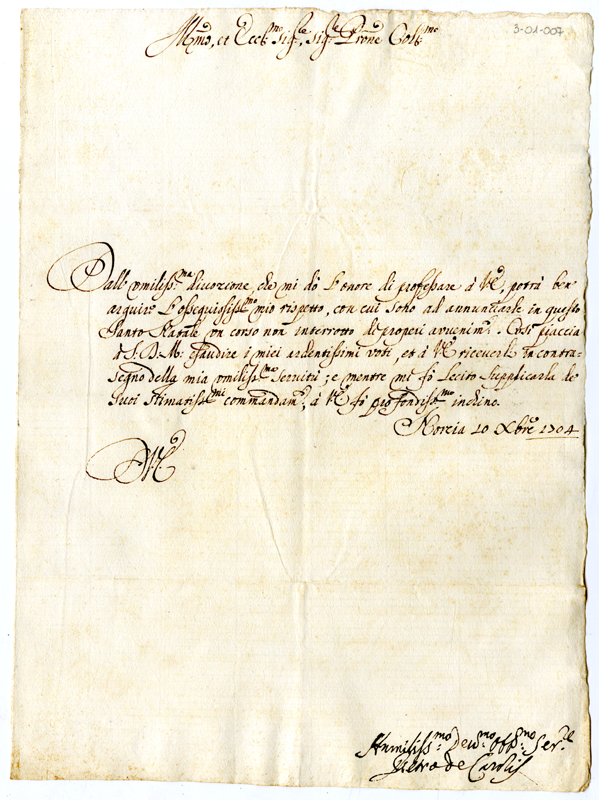 3-01-007
Illmo, et Ecc:mo Sig:re, Sig:re Prone Col:mo
Dall' vmiliss:ma divozione, che mi dò l'onore di professare à V.E., potrà ben
arguire l'ossequiosiss:mo mio rispetto, con cui sono ad annunciarle in questo
Santo Natale vn corso non interrotto di properi avvenim:ti. Così piaccia
à S.D.M: esaudire i miei ardentissimi voti, et à V.E. riceuerli in contra-
segno della mia vmiliss:ma seruitù; e mentre mi fò lecito supplicarla de
suoi stimatiss:mi commandam:ti, à V.E. fò profondiss:mo inchino.
Norcia 10 Xbre 1704
V.E.
Humiliss:mo Deu:mo Obb:mo Ser:re
Pietro de Carolis